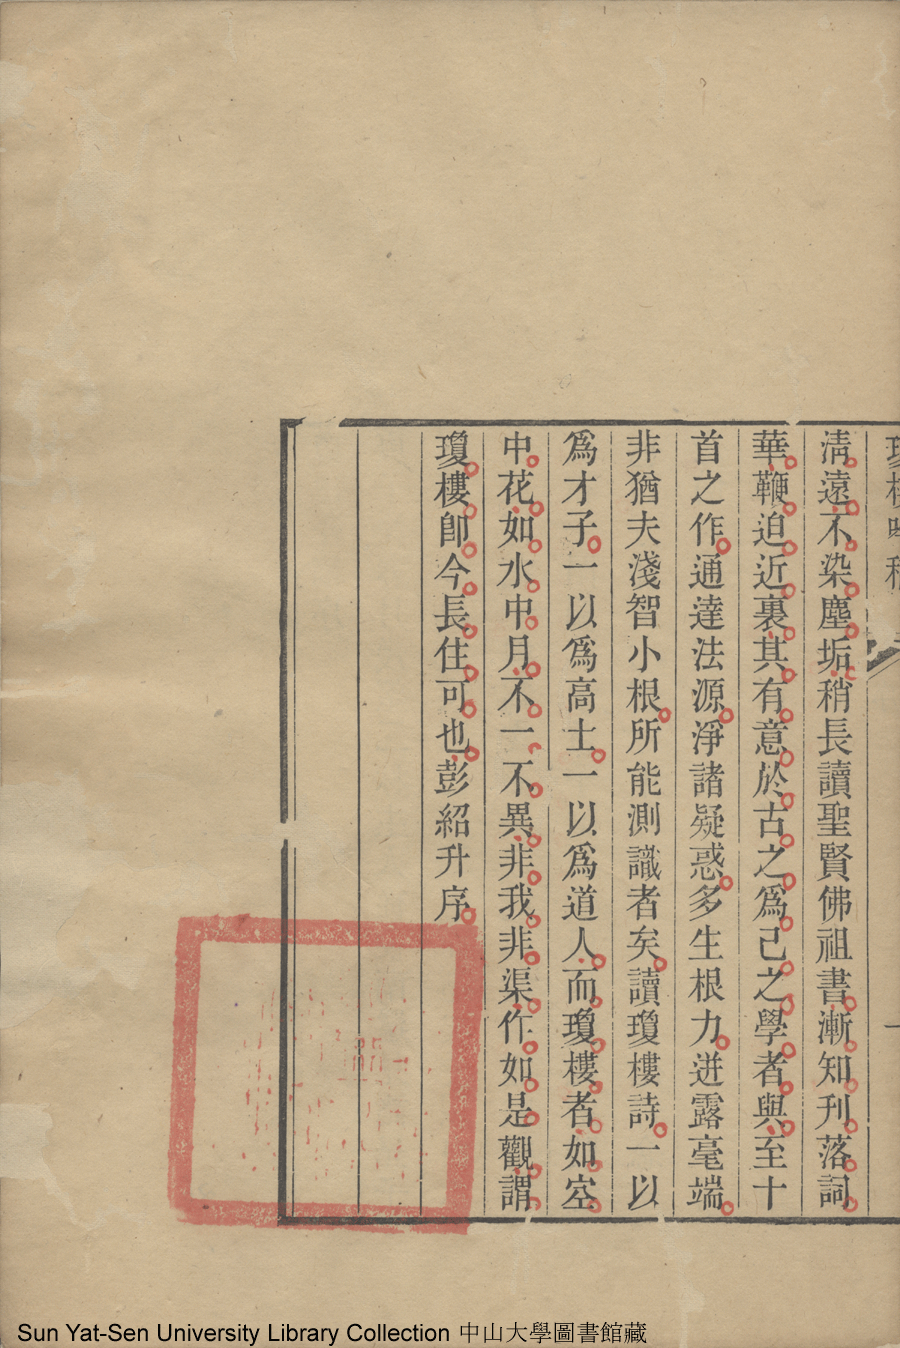 清遠不染塵垢稍長讀聖賢佛祖書漸知刋落詞
華鞭迫近裏其有意於古之爲己之學者與至十
首之作通達法源淨諸疑惑多生根力迸露毫端
非猶夫淺智小根所能測識者矣讀瓊樓詩一以
爲才子一以爲高士一以爲道人而瓊樓者如空
中花如水中月不一不異非我非渠作如是觀謂
瓊樓卽今長住可也彭紹升序
Sun Yat-Sen University Library Collection 中山大學圖書館藏